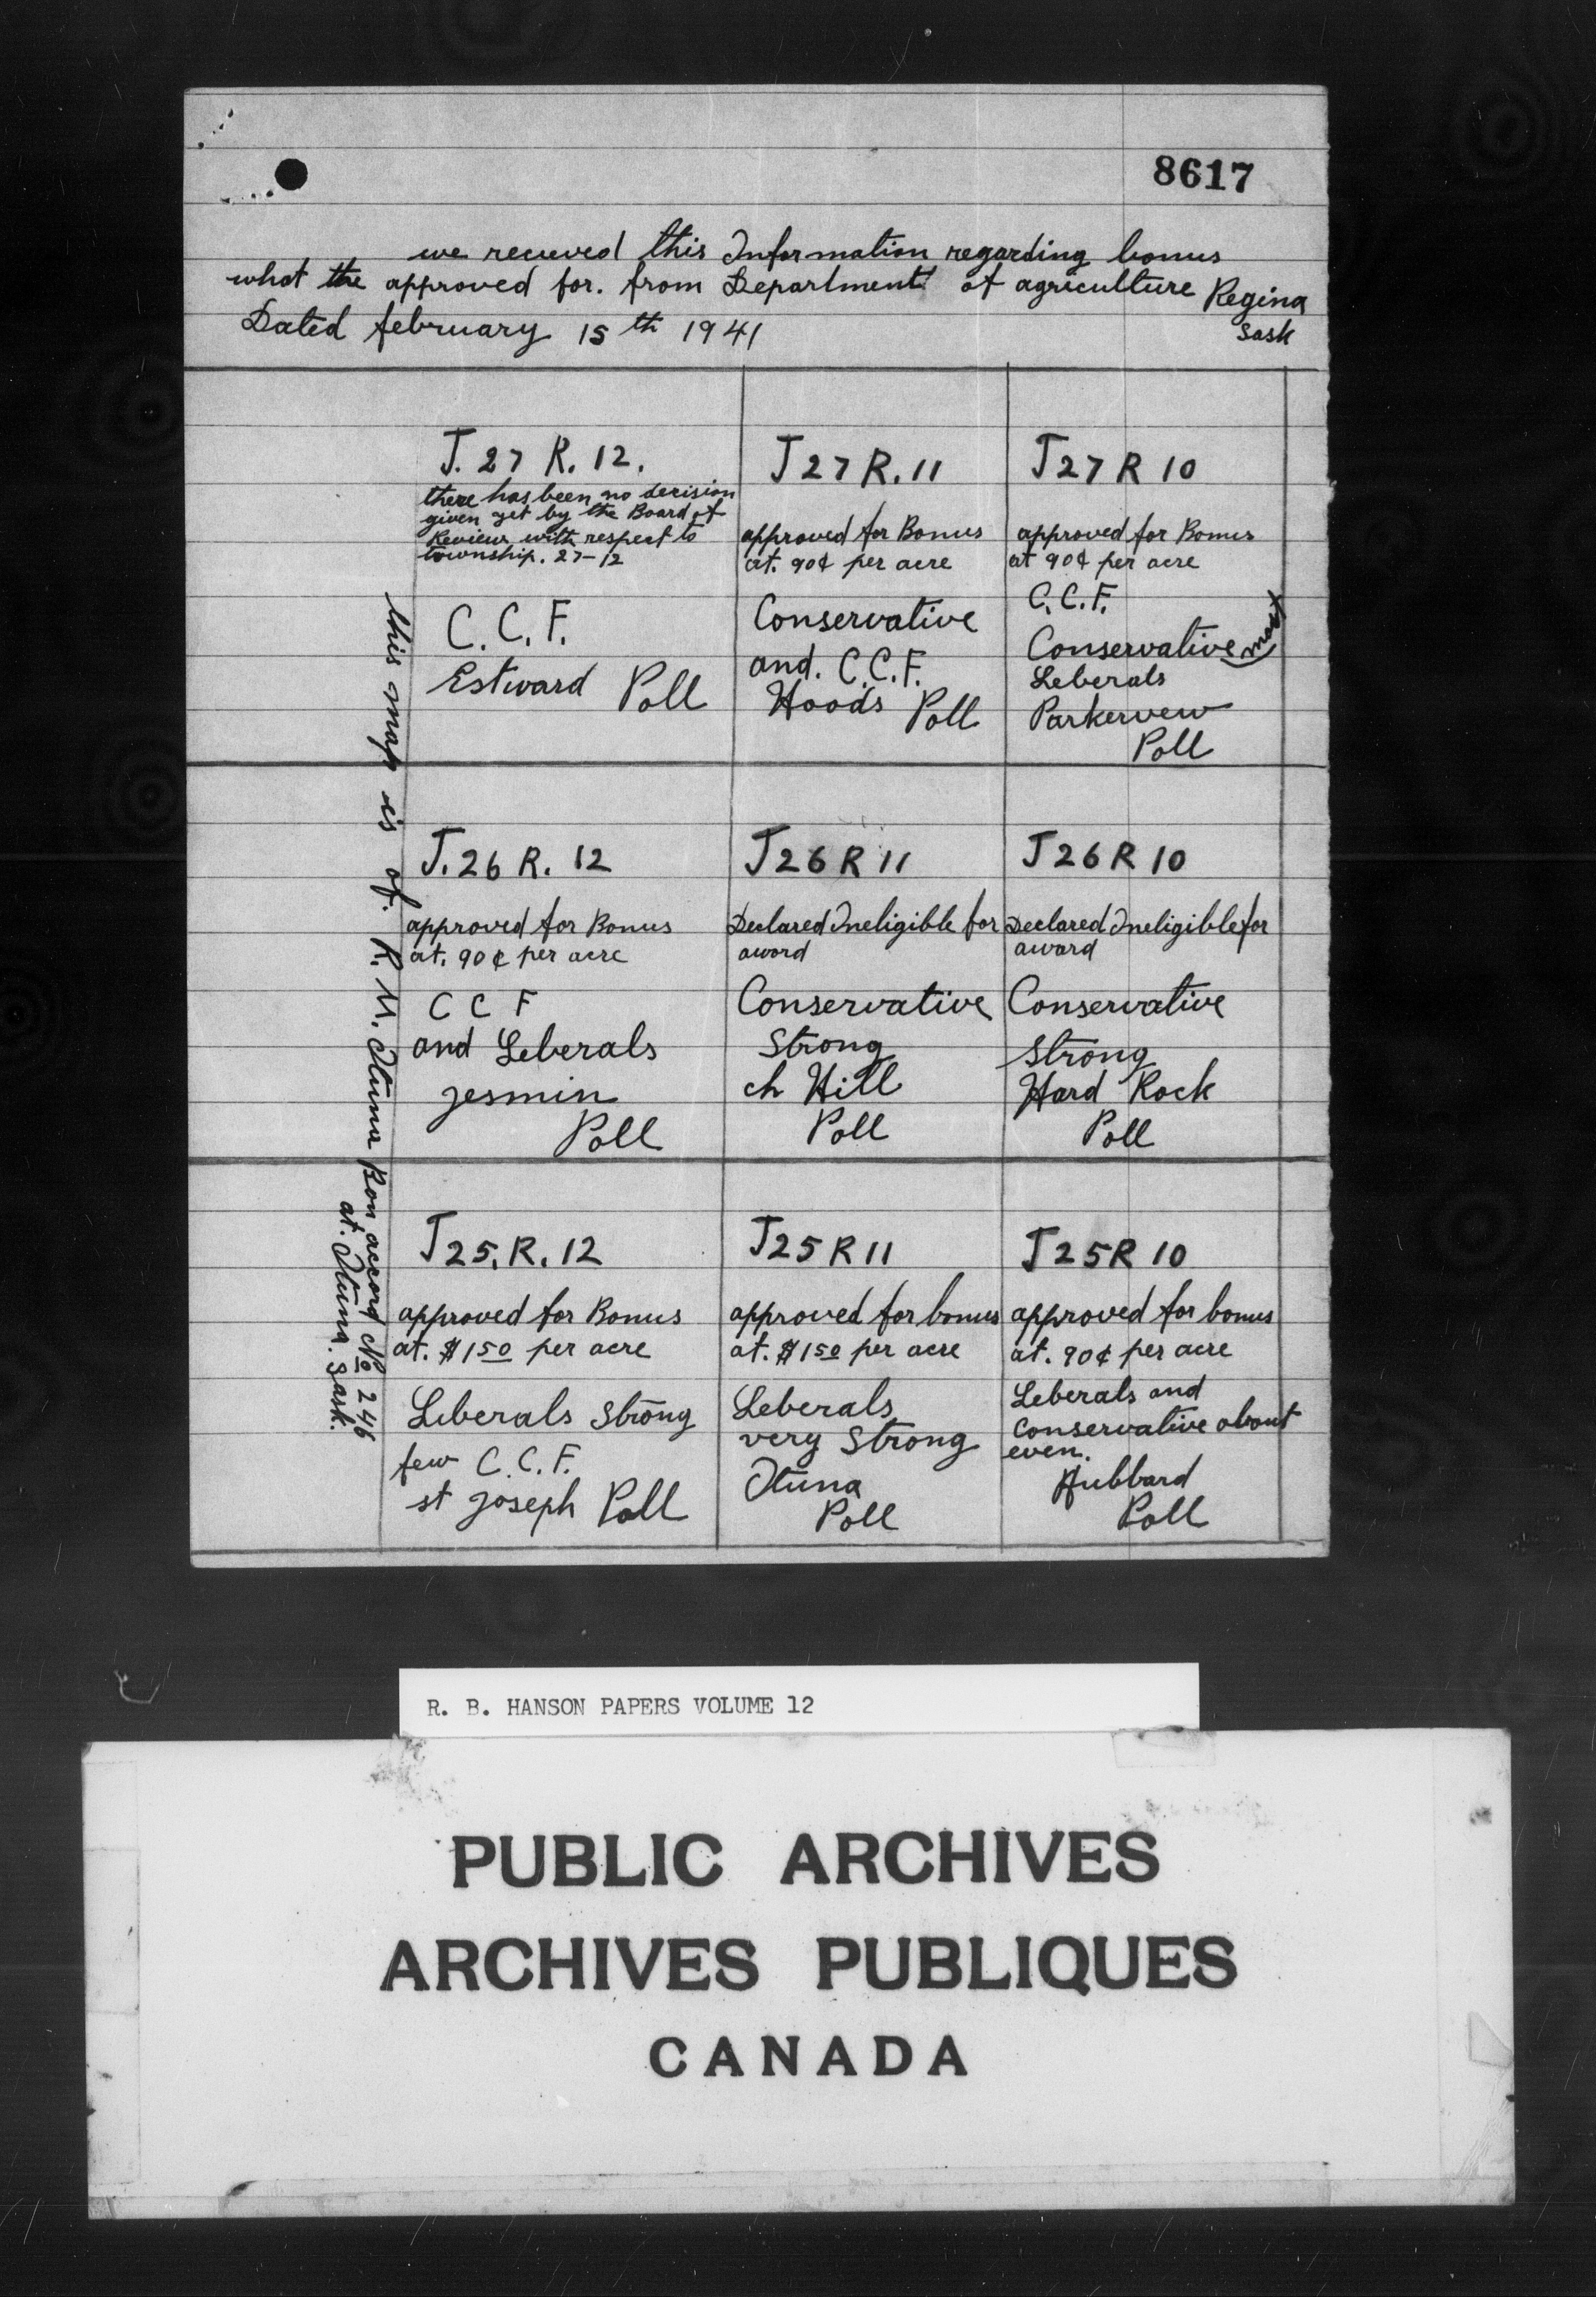 8617
we recieved this Information regarding bonus
what the approved for. from Department of agriculture Regina
Sask
Dated february 15th 1941
T. 27 R. 12.
there has been no decision
given yet by the Board of
Review with respect to
township. 27-12
C. C. F.
Estward Poll
T 27 R. 11
approved for Bonus
at. 90¢ per acre
Conservative
and. C.C.F.
Hoods Poll
T 27 R 10
approved for Bonus
at 90¢ per acre
C.C.F.
Conservative most
Leberals
Parkervew
Poll
T. 26 R. 12
approved for Bonus
at. 90¢ per acre
C C F
and Leberals
jesmin
Poll
T 26 R 11
Declared Ineligible for
award
Conservative
Strong
ch Hill
Poll
T 26 R 10
Declared Ineligible for
award
Conservative
strong
Hard Rock
Poll
T 25. R. 12
approved for Bonus
at. $150 per acre
Liberals strong
few C.C.F.
st joseph Poll
T 25 R 11
approved for bonus
at. $150 per acre
Leberals
very Strong
Ituna
Poll
T 25 R 10
approved for bonus
at. 90¢ per acre
Leberals and
conservative about
even.
Hubbard
Poll
this map is of. R. M. Ituna Bon accord No 246
at. Ituna. Sask.
R. B. HANSON PAPERS VOLUME 12
PUBLIC ARCHIVES
ARCHIVES PUBLIQUES
CANADA